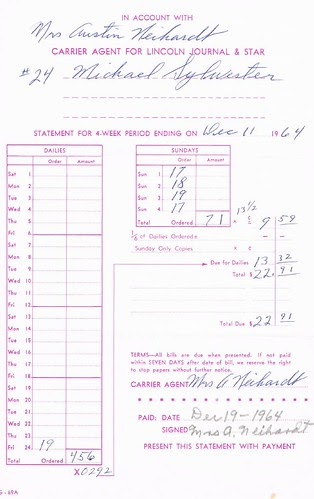 IN ACCOUNT WITH
Mrs Austin Neihardt
CARRIER AGENT FOR LINCOLN JOURNAL & STAR
#24 Michael Sylvester
STATEMENT FOR 4-WEEK PERIOD ENDING ON Dec 11 1964
DAILIES
Order Amount
Sat 1
Mon 2
Tue 3
Wed 4
Thu 5
Fri 6
Sat 7
Mon 8
Tue 9
Wed 10
Thu 11
Fri 12
Sat 13
Mon 14
Tue 15
Wed 16
Thu 17
Fri 18
Sat 19
Mon 20
Tue 21
Wed 22
Thu 23
Fri 24 19
Total Ordered 456
X0292
SUNDAYS
Order Amount
Sun 1 17
Sun 2 18
Sun 3 19
Sun 4 17
Total Ordered 71 @ 13½ ¢ 9 59
⅙ of Dailies Ordered
Sunday Only Copies ¢
Due for Dailies 13 32
Total $ 22 91
Total Due $ 22 91
TERMS—All bills are due when presented. If not paid
within SEVEN DAYS after date of bill, we reserve the right
to stop papers without further notice.
CARRIER AGENT Mrs A Neihardt
PAID: DATE Dec 19-1964
SIGNED Mrs A. Neihardt
PRESENT THIS STATEMENT WITH PAYMENT
69A